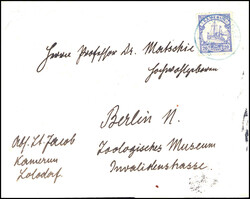 Herrn Professor Dr. Matschie
Hochwohlgeboren
Berlin N.
Zoologisches Museum
Invalidenstrasse.
Abs. Lt. Jacob
Kamerun
Lolodorf.
KAMERUN